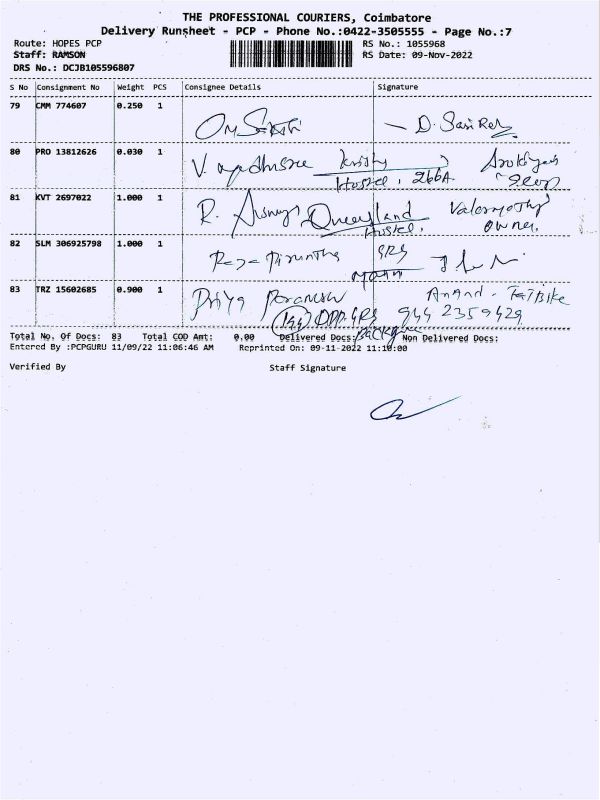 THE PROFESSIONAL COURIERS, Coimbatore
Delivery Runsheet - PCP - Phone No.:0422-3505555 - Page No.:7
Route: HOPES PCP
RS No.: 1055968
Staff: RAMSON
RS Date: 09-Nov-2022
DRS No.: DCJB105596807
S No Consignment No Weight PCS Consignee Details Signature
79 CMM 774607 0.250 1
Om Sakthi
80 PRO 13812626 0.030 1
V.
Hostel, 266A.
81 KVT 2697022 1.000 1
R. Queensland
Hostel, owner.
82 SLM 306925798 1.000 1
GRG
83 TRZ 15602685 0.900 1
Priya Anand
144 OPP. GRG 944 2359429
Total No. Of Docs: 83 Total COD Amt: 0.00 Delivered Docs: Non Delivered Docs:
Entered By :PCPGURU 11/09/22 11:06:46 AM Reprinted On: 09-11-2022 11:10:00
Verified By Staff Signature